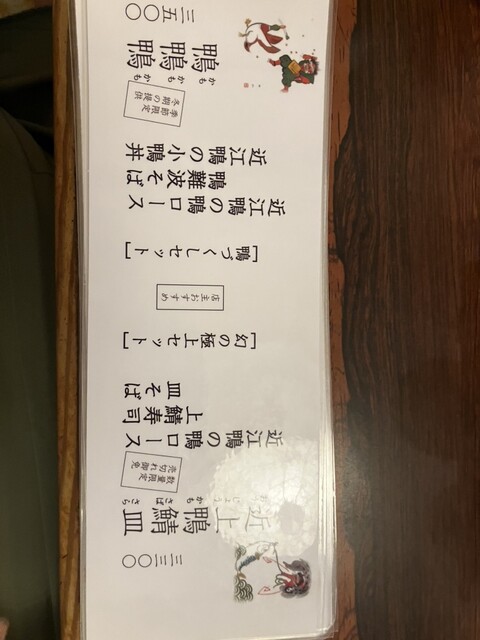 三三〇〇
近上鴨鯖皿
かも さば さら
数量限定
売切れ御免
近江鴨のロース
上鯖寿司
皿そば
[幻の極上セット]
店主おすすめ
[鴨づくしセット]
近江鴨のロース
鴨難波そば
近江鴨の小鴨丼
季節限定
冬期の提供
かも かも かも
鴨鴨鴨
三五〇〇